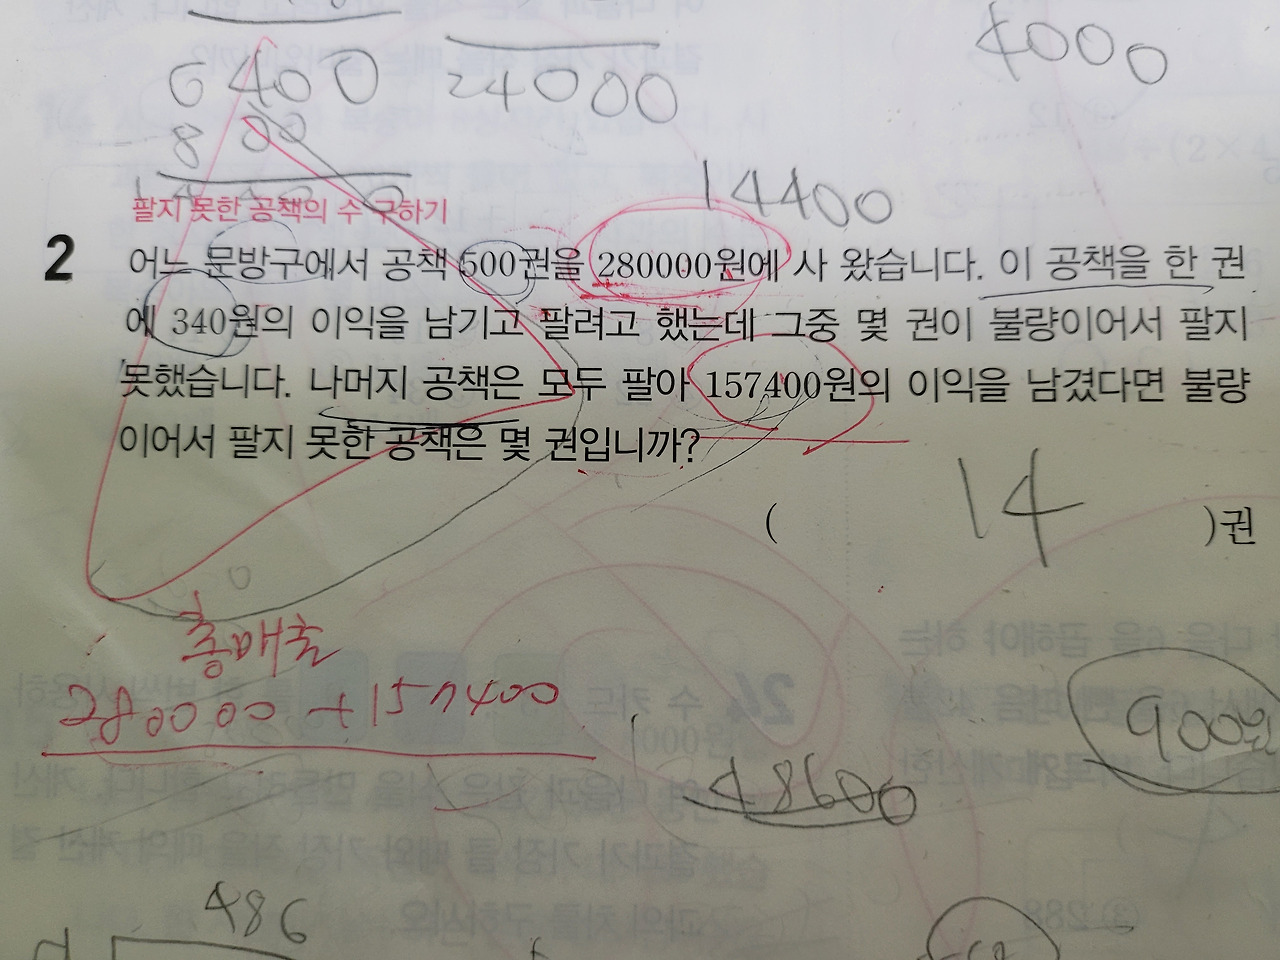 6400 24000 4000
800
14400
팔지 못한 공책의 수 구하기
2 어느 문방구에서 공책 500권을 280000원에 사 왔습니다. 이 공책을 한 권
에 340원의 이익을 남기고 팔려고 했는데 그중 몇 권이 불량이어서 팔지
못했습니다. 나머지 공책은 모두 팔아 157400원의 이익을 남겼다면 불량
이어서 팔지 못한 공책은 몇 권입니까?
( 14 )권
총매출
280000+157400
900원
48600
486